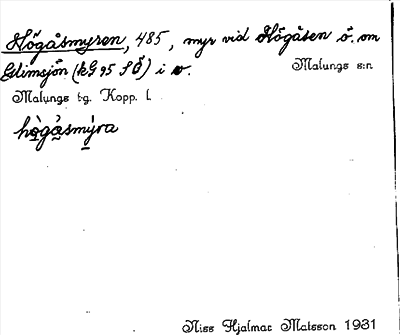 Högåsmyren, 485, myr vid Högåsen ö. om
Glimsjön (kG 95 SÖ) i v. Malungs s:n
Malungs tg. Kopp. l.
hö̀gåsmýra
Niss Hjalmar Matsson 1931